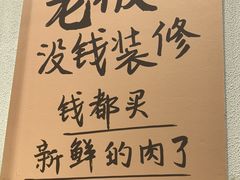 老板
没钱装修
钱都买
新鲜的肉了